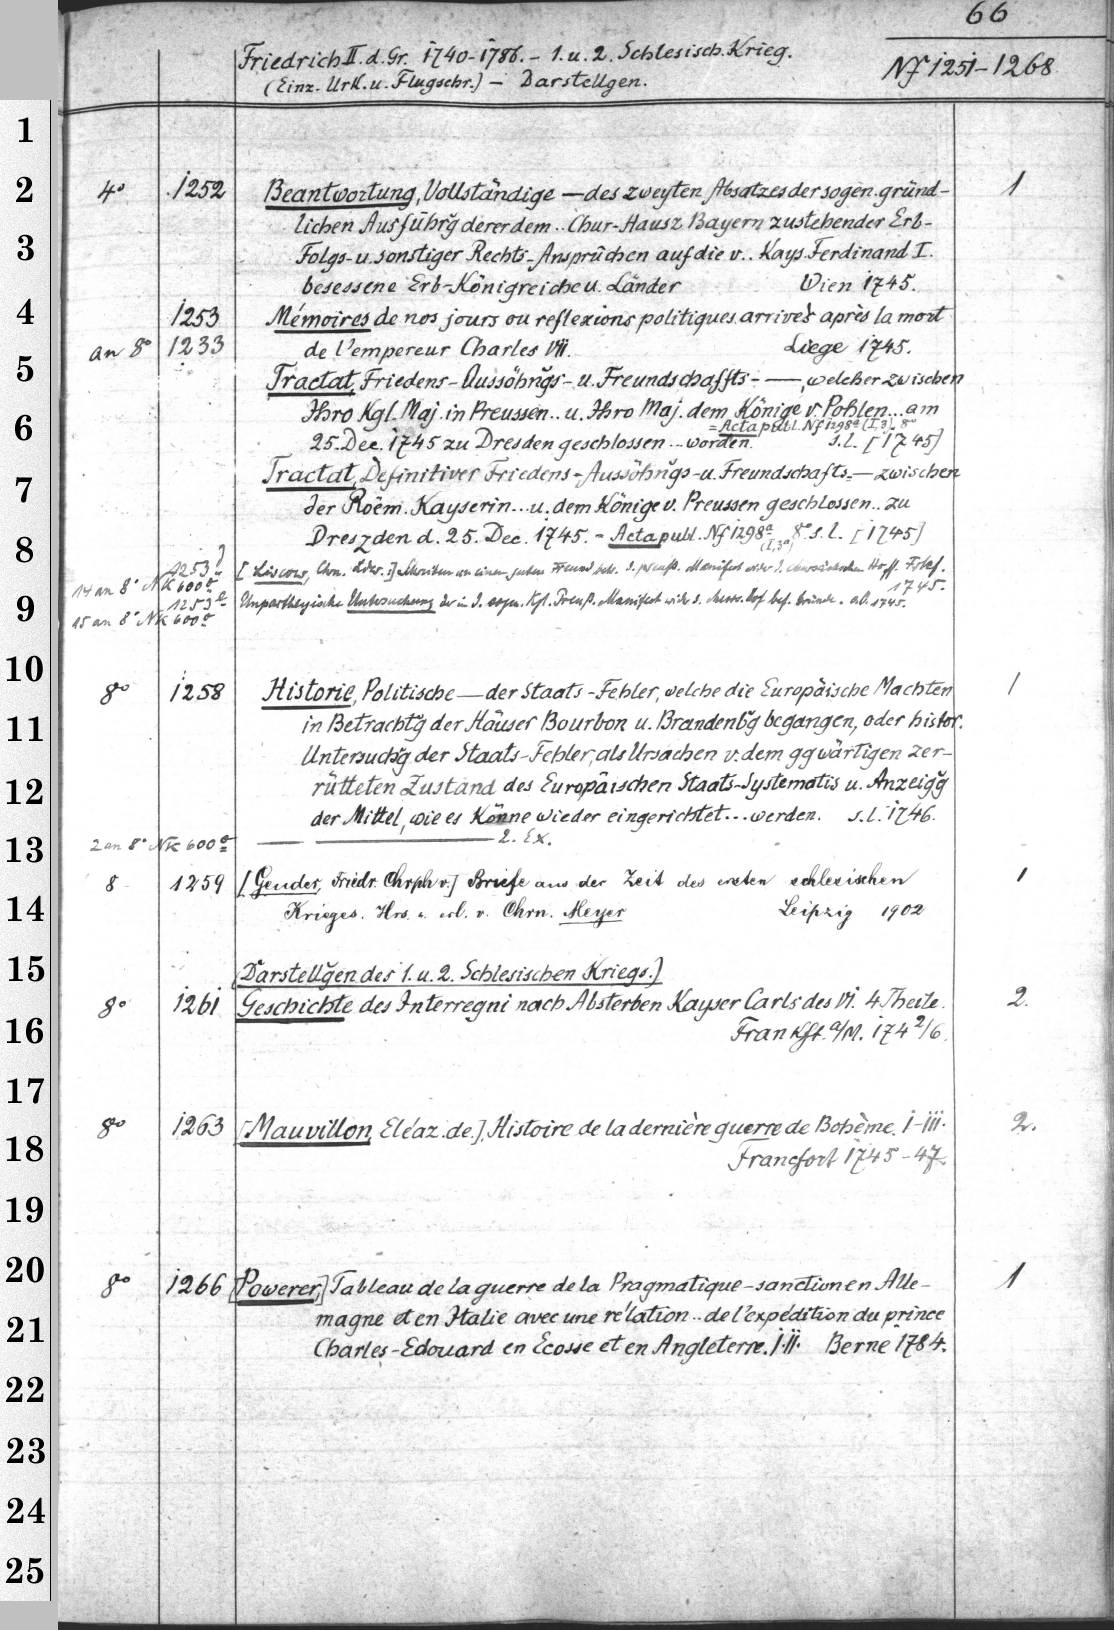 66
Friedrich II. d. Gr. 1740-1786. - 1. u. 2. Schlesisch. Krieg.
Nf 1251-1268
(Einz. Urk. u. Flugschr.) - Darstellgen.
1
2
4° 1252 Beantwortung, Vollständige — des zweyten Absatzes der sogen. gründ- 1
lichen Ausführg derer dem .. Chur-Hausz Bayern zustehender Erb-
3
Folgs- u. sonstiger Rechts-Ansprüchen auf die v.. Kays. Ferdinand I.
besessene Erb-Königreiche u. Länder Wien 1745.
4
1253 Mémoires de nos jours ou reflexions politiques arrivés après la mort
an 8° 1233 de l'empereur Charles VII. Liege 1745.
5
Tractat, Friedens-Aussöhngs- u. Freundschaffts- —, welcher zwischen
Ihro Kgl. Maj. in Preussen.. u. Ihro Maj. dem Könige v. Pohlen... am
6
= Acta publ. Nf 1298a (I,3). 8°
25. Dec. 1745 zu Dresden geschlossen ... worden. s.l. [1745]
Tractat, Definitiver Friedens-Aussöhngs- u. Freundschafts- — zwischen
7
der Röem. Kayserin... u. dem Könige v. Preussen geschlossen.. zu
Dreszden d. 25. Dec. 1745. = Acta publ. Nf 1298a (I,3a) 8° s.l. [1745]
8
1253
14 an 8° NK 600a [Liscow, Chn. Ldw.:] Schreiben an einen guten Freund Manifest Hoff. Frkf.
1745.
1253e Unpartheyische Untersuchung der in d. Kgl. Preuß. Manifest wider Hof bef. Gründe. 1745.
9
15 an 8° NK 600a
10
8° 1258 Historie, Politische — der Staats-Fehler, welche die Europäische Machten 1
11
in Betrachtg der Häuser Bourbon u. Brandenbg begangen, oder histor.
Untersuchg der Staats-Fehler, als Ursachen v. dem ggwärtigen zer-
12
rütteten Zustand des Europäischen Staats-Systematis u. Anzeigg
der Mittel, wie es Könne wieder eingerichtet... werden. s.l. 1746.
13
2 an 8° NK 600a — — 2. Ex.
8 1259 [Gender, Friedr. Chrph v.] Briefe aus der Zeit des ersten schlesischen 1
14
Krieges. Hrs. u. erl. v. Chrn. Meyer Leipzig 1902
15
[Darstellgen des 1. u. 2. Schlesischen Kriegs.]
8° 1261 Geschichte des Interregni nach Absterben Kayser Carls des VI. 4 Theile. 2.
16
Frankft. a/M. 174 2/6.
17
8° 1263 [Mauvillon, Eléaz. de.] Histoire de la dernière guerre de Bohème. I-III. 2.
18
Francfort 1745-47.
19
20
8° 1266 [Powerer,] Tableau de la guerre de la Pragmatique-sanction en Alle- 1
21
magne et en Italie avec une rélation .. de l'expédition du prince
Charles-Edouard en Ecosse et en Angleterre. I.II. Berne 1784.
22
23
24
25